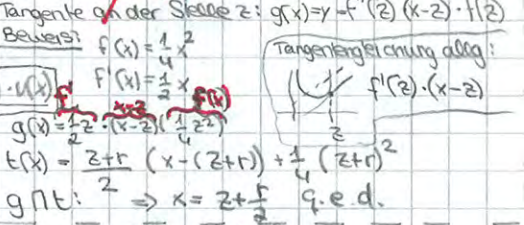 Tangente an der Stelle z: g(x)=y=f'(z)(x-z)+f(z)
Beweis:
f(x)=1/4 x²
f'(x)=1/2 x
Tangentengleichung allg:
f'(z)·(x-z)
z
·u(x)
f' x=z f(x)
g(x)=1/2 z·(x-z)(1/4 z²)
t(x) = z+r/2 (x-(z+r)) + 1/4 (z+r)²
g∩t: ⇒ x= z+r/2 q.e.d.